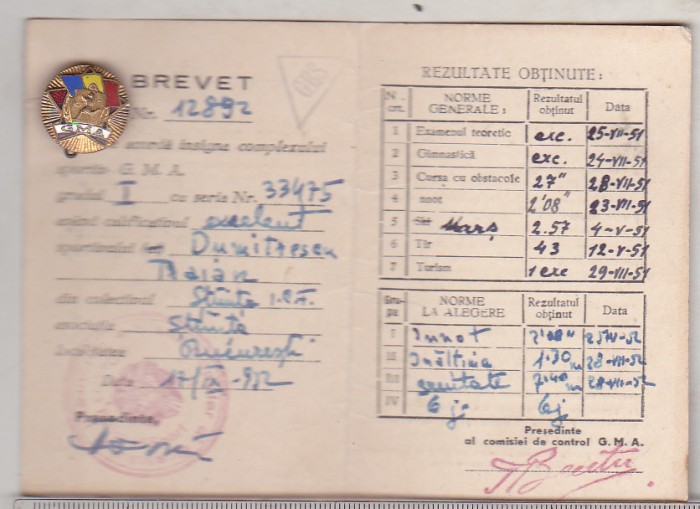 GMA
CNS
BREVET
Nr. 12892
acordă insigna complexului
sportiv G. M. A.
gradul I cu seria Nr. 33475
având calificativul excelent
sportivului Dumitrescu
Traian
din colectivul Știința
asociația Știința
Localitatea București
Data 17/IX-952
Președinte,
REZULTATE OBȚINUTE:
N. crt. NORME GENERALE: Rezultatul obținut Data
1 Examenul teoretic exc. 25-VII-51
2 Gimnastică exc. 24-VII-51
3 Cursa cu obstacole 27" 28-VII-51
4 not 2'08" 23-VII-51
5 Marș 2.57 4-V-51
6 Tir 43 12-V-51
7 Turism 1 exc 29-VII-51
Grupa NORME LA ALEGERE Rezultatul obținut Data
I Innot
II Inălțime 1.30 m 28-VII-52
III greutate 7.40 m 28-VII-52
IV
Președinte
al comisiei de control G. M. A.